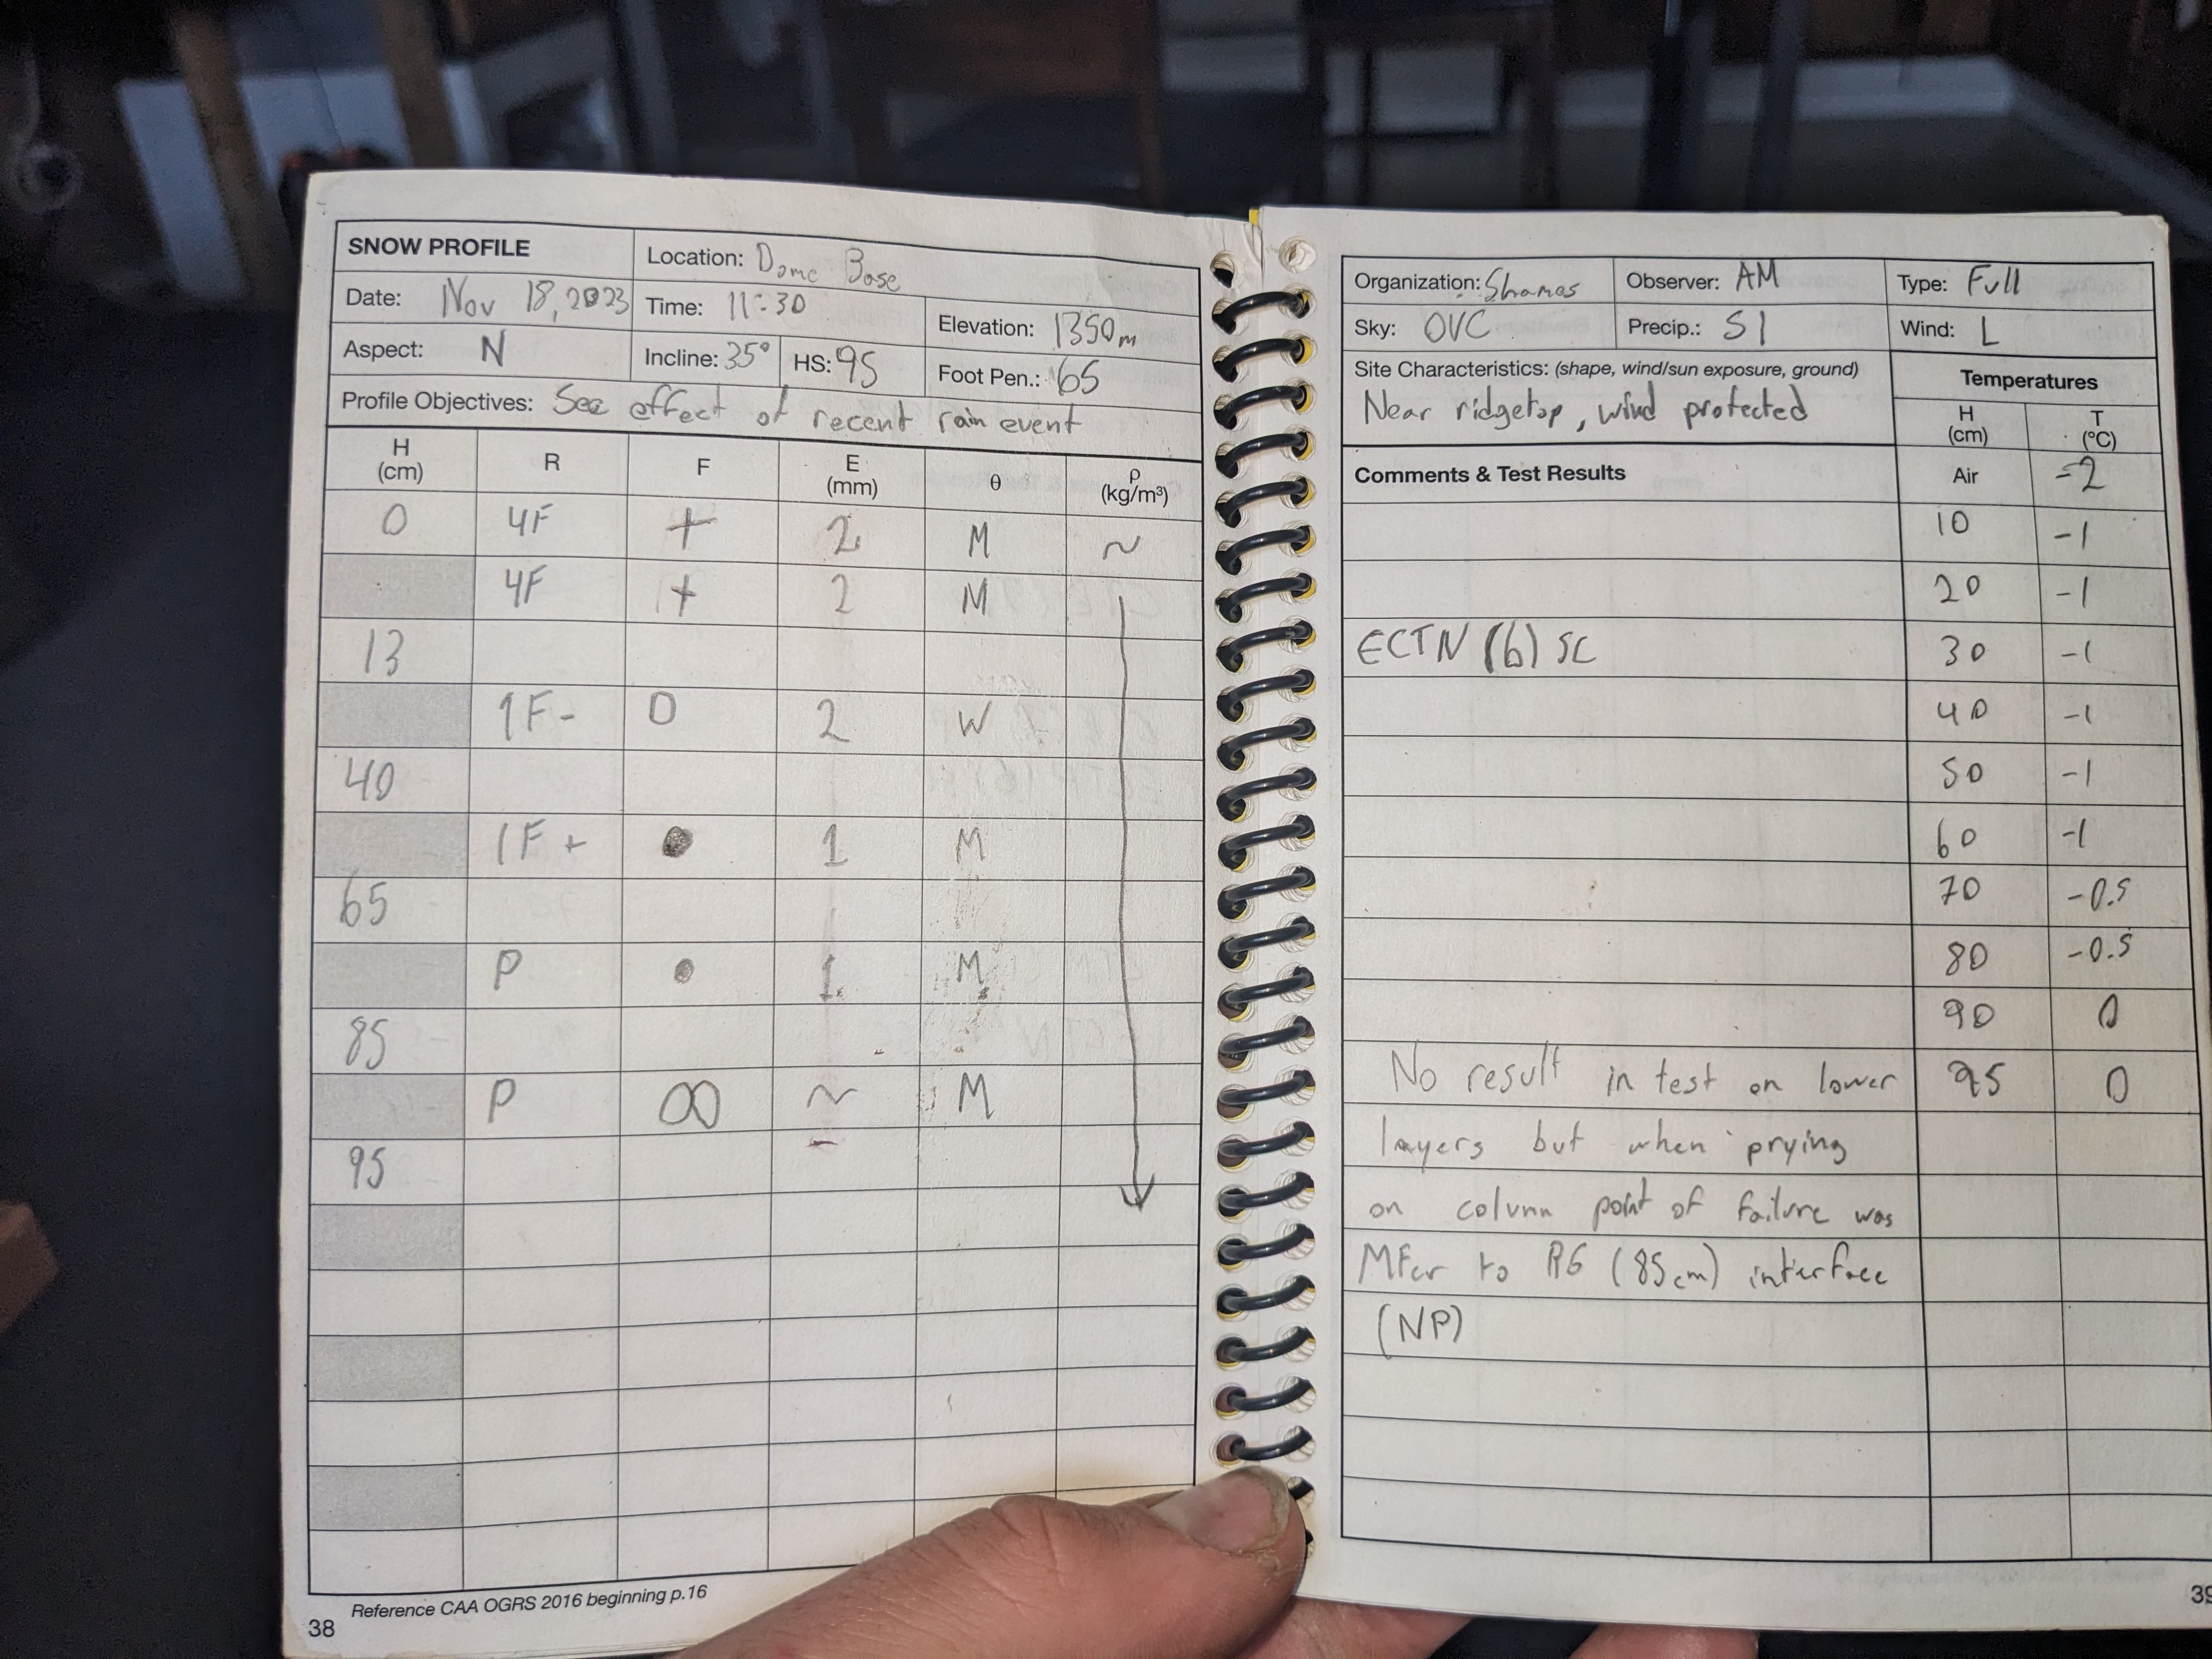 SNOW PROFILE
Location: Dome Base
Date: Nov 18, 2023
Time: 11:30
Elevation: 1350m
Aspect: N
Incline: 35°
HS: 95
Foot Pen.: 65
Profile Objectives: See effect of recent rain event
H (cm) R F E (mm) θ ρ (kg/m³)
0 4F + 2 M ~
4F + 2 M
13
1F- O 2 W
40
1F+ ● 1 M
65
P ● 1 M
85
P ∞ ~ M
95
Reference CAA OGRS 2016 beginning p.16
38
Organization: Shames
Observer: AM
Type: Full
Sky: OVC
Precip.: S1
Wind: L
Site Characteristics: (shape, wind/sun exposure, ground)
Near ridgetop, wind protected
Temperatures
H (cm) T (°C)
Comments & Test Results
Air -2
10 -1
20 -1
ECTN (6) SC 30 -1
40 -1
50 -1
60 -1
70 -0.5
80 -0.5
90 0
No result in test on lower 95 0
layers but when prying
on column point of failure was
MFcr to RG (85cm) interface
(NP)
39